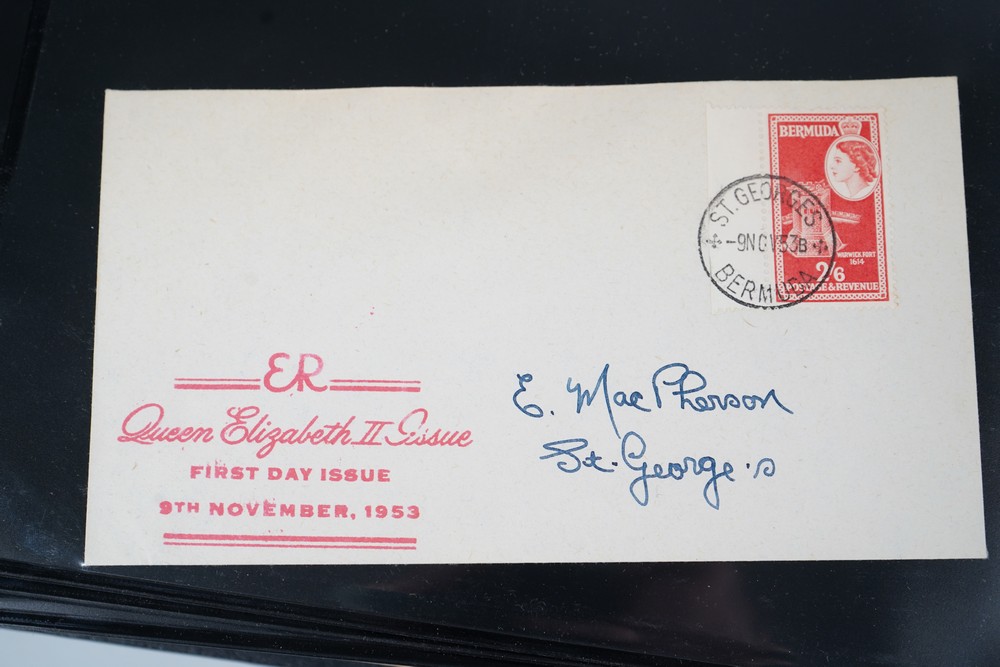 BERMUDA
WARWICK FORT
1614
2/6
POSTAGE & REVENUE
ST. GEORGES
-9 NOV 53 B
BERMUDA
ER
Queen Elizabeth II Issue
FIRST DAY ISSUE
9TH NOVEMBER, 1953
E. MacPherson
St. George's